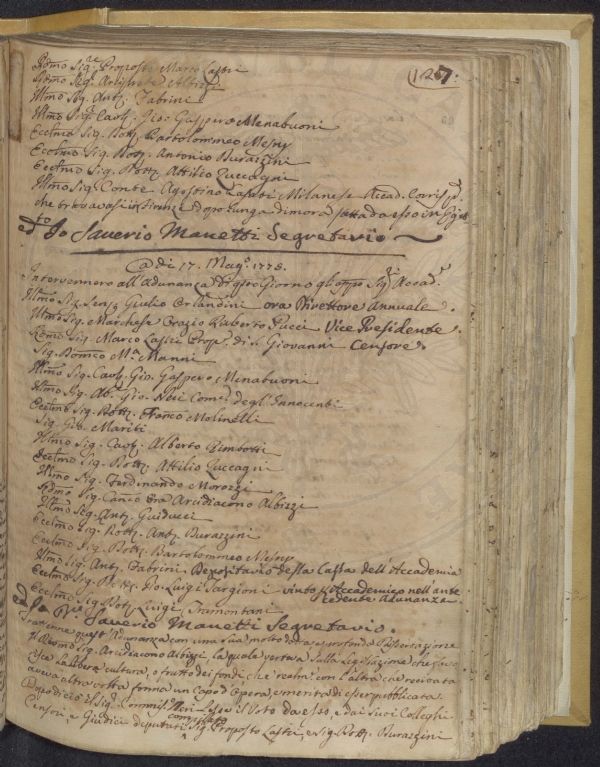 127.
Rdmo Sig.re Proposto Marco Lastri
Rdmo Sig.
Illmo Sig. Ant.o Fabrini
Illmo Sig.r Cav. Gio: Gaspero Menabuoni
Ecclmo Sig. Dott. Bartolommeo Mesny
Ecclmo Sig. Dott. Antonio Durazzini
Ecclmo Sig. Dott. Attilio Zuccagni
Illmo Sig. Conte Agostino Milanese Accad. Corrisp.
che trovavasi in Firenze dopo lunga dimora fatta da esso in
ed Io Saverio Manetti Segretario
Adi 17. Mag.o 1775.
Intervennero all'Adunanza di Giorno gli Sig.ri Accad.i
Illmo Sig. Sen. Giulio Orlandini ora Direttore Annuale.
Illmo Sig. Marchese Orazio Ruberto Pucci Vice Presidente.
Rdmo Sig. Marco Lastri Prop. di S. Giovanni Censore.
Sig. Domco M.a Manni
Illmo Sig. Cav. Gio. Gaspero Menabuoni
Illmo Sig. Ab.e Gio. Neri Com. degl'Innocenti
Ecclmo Sig. Dott. Franco Molinelli
Sig. Gio. Mariti
Illmo Sig. Cav. Alberto Rimbotti
Ecclmo Sig. Dott. Attilio Zuccagni
Illmo Sig. Ferdinando Morozzi
Rdmo Sig. Canco Arcidiacono Albizzi
Illmo Sig. Ant. Guiducci
Ecclmo Sig. Dott. Ant. Durazzini
Ecclmo Sig. Dott. Bartolommeo Mesny
Illmo Sig. Ant. Fabrini Depositario della Cassa dell'Accademia
Ecclmo Sig. Dott. Gio. Luigi Targioni vinto p Accademico nell'ante
cedente Adunanza.
Ecclmo Sig. Dott. Luigi Tramontani
ed Io Saverio Manetti Segretario.
Trattenne quest'Adunanza con una sua molto dotta e profonda Dissertazione
il Rdmo Sig. Arcidiacono Albizzi, la quale verteva sulla Legislazione che
la libera cultura, o frutto dei fondi
altra volta forma un Capo d'Opera, e merita di esser pubblicata.
Dopo di ciò il Sig. Commiss. Neri Lesse il Voto da esso, e dai suoi Colleghi
Censori, e Giudici deputati Sig. Proposto Lastri, e Sig. Dott. Durazzini